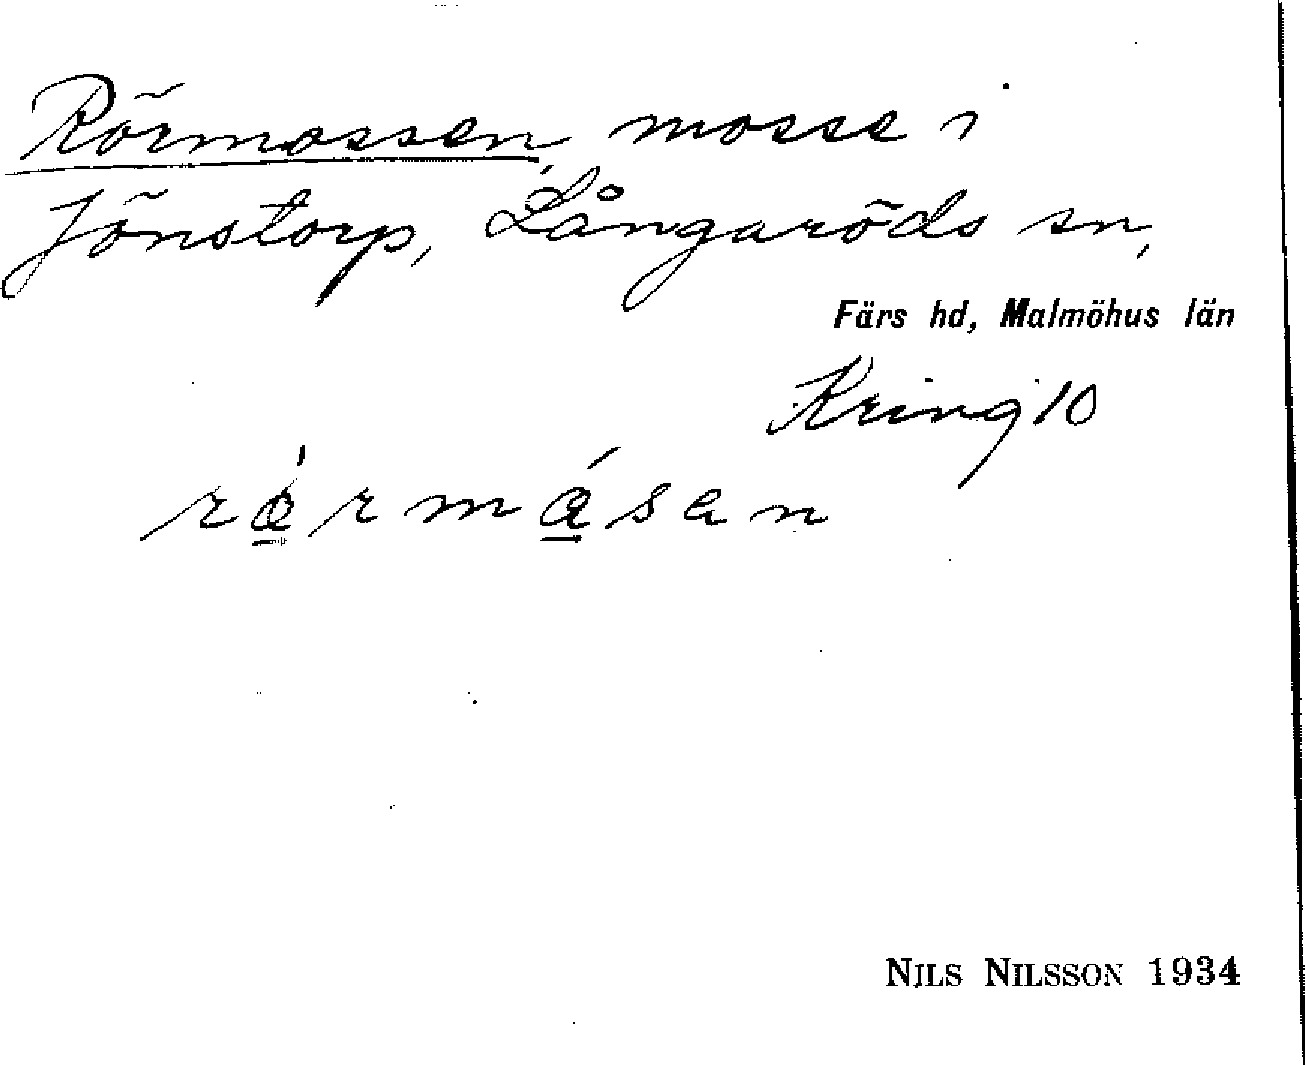 Rörmossen, mosse i
Jönstorp, Långaröds sn,
Färs hd, Malmöhus län
Kring 10
rǿrmǻsen
NILS NILSSON 1934